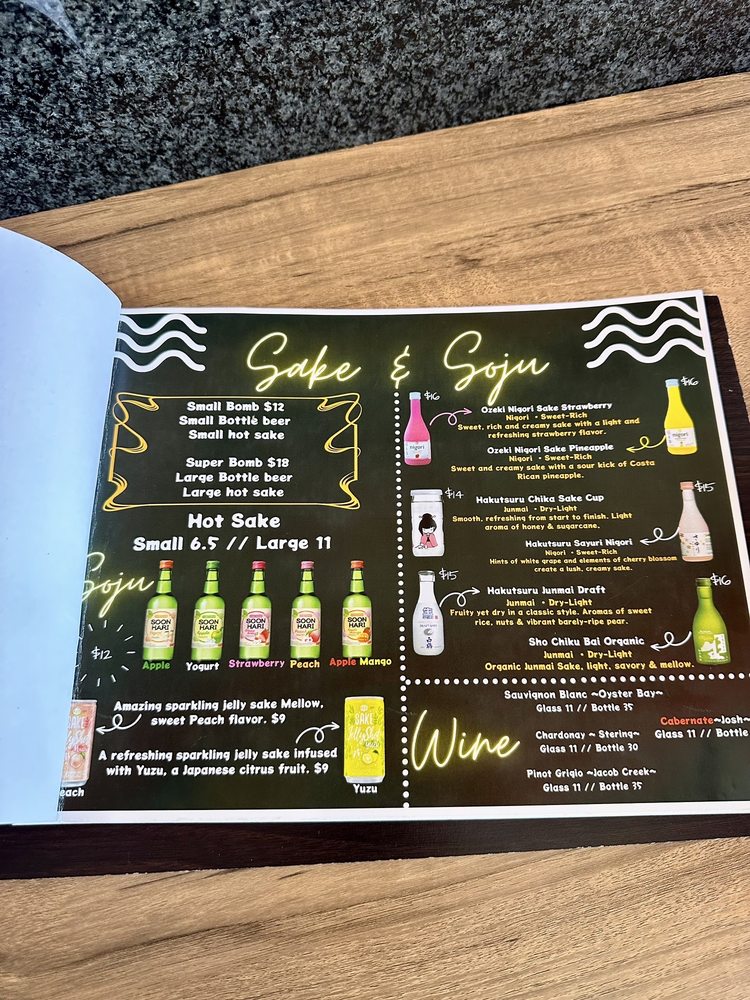 Sake & Soju
Small Bomb $12
Small Bottle beer
Small hot sake
Super Bomb $18
Large Bottle beer
Large hot sake
Hot Sake
Small 6.5 // Large 11
Soju
$12
SOON HARI
SOON HARI
SOON HARI
SOON HARI
SOON HARI
Apple
Yogurt
Strawberry
Peach
Apple Mango
Amazing sparkling jelly sake Mellow,
sweet Peach flavor. $9
A refreshing sparkling jelly sake infused
with Yuzu, a Japanese citrus fruit. $9
each
SAKE
Jelly Shot
Yuzu
$16
nigori
Ozeki Nigori Sake Strawberry
Nigori • Sweet-Rich
Sweet, rich and creamy sake with a light and
refreshing strawberry flavor.
$16
nigori
Ozeki Nigori Sake Pineapple
Nigori • Sweet-Rich
Sweet and creamy sake with a sour kick of Costa
Rican pineapple.
$14
Hakutsuru Chika Sake Cup
Junmai • Dry-Light
Smooth, refreshing from start to finish. Light
aroma of honey & sugarcane.
$15
Hakutsuru Sayuri Nigori
Nigori • Sweet-Rich
Hints of white grape and elements of cherry blossom
create a lush, creamy sake.
$15
Hakutsuru Junmai Draft
Junmai • Dry-Light
Fruity yet dry in a classic style. Aromas of sweet
rice, nuts & vibrant barely-ripe pear.
$16
Sho Chiku Bai Organic
Junmai • Dry-Light
Organic Junmai Sake, light, savory & mellow.
Wine
Sauvignon Blanc ~Oyster Bay~
Glass 11 // Bottle 35
Chardonay ~ Stering~
Glass 11 // Bottle 30
Pinot Grigio ~Jacob Creek~
Glass 11 // Bottle 35
Cabernate~Josh~
Glass 11 // Bottle